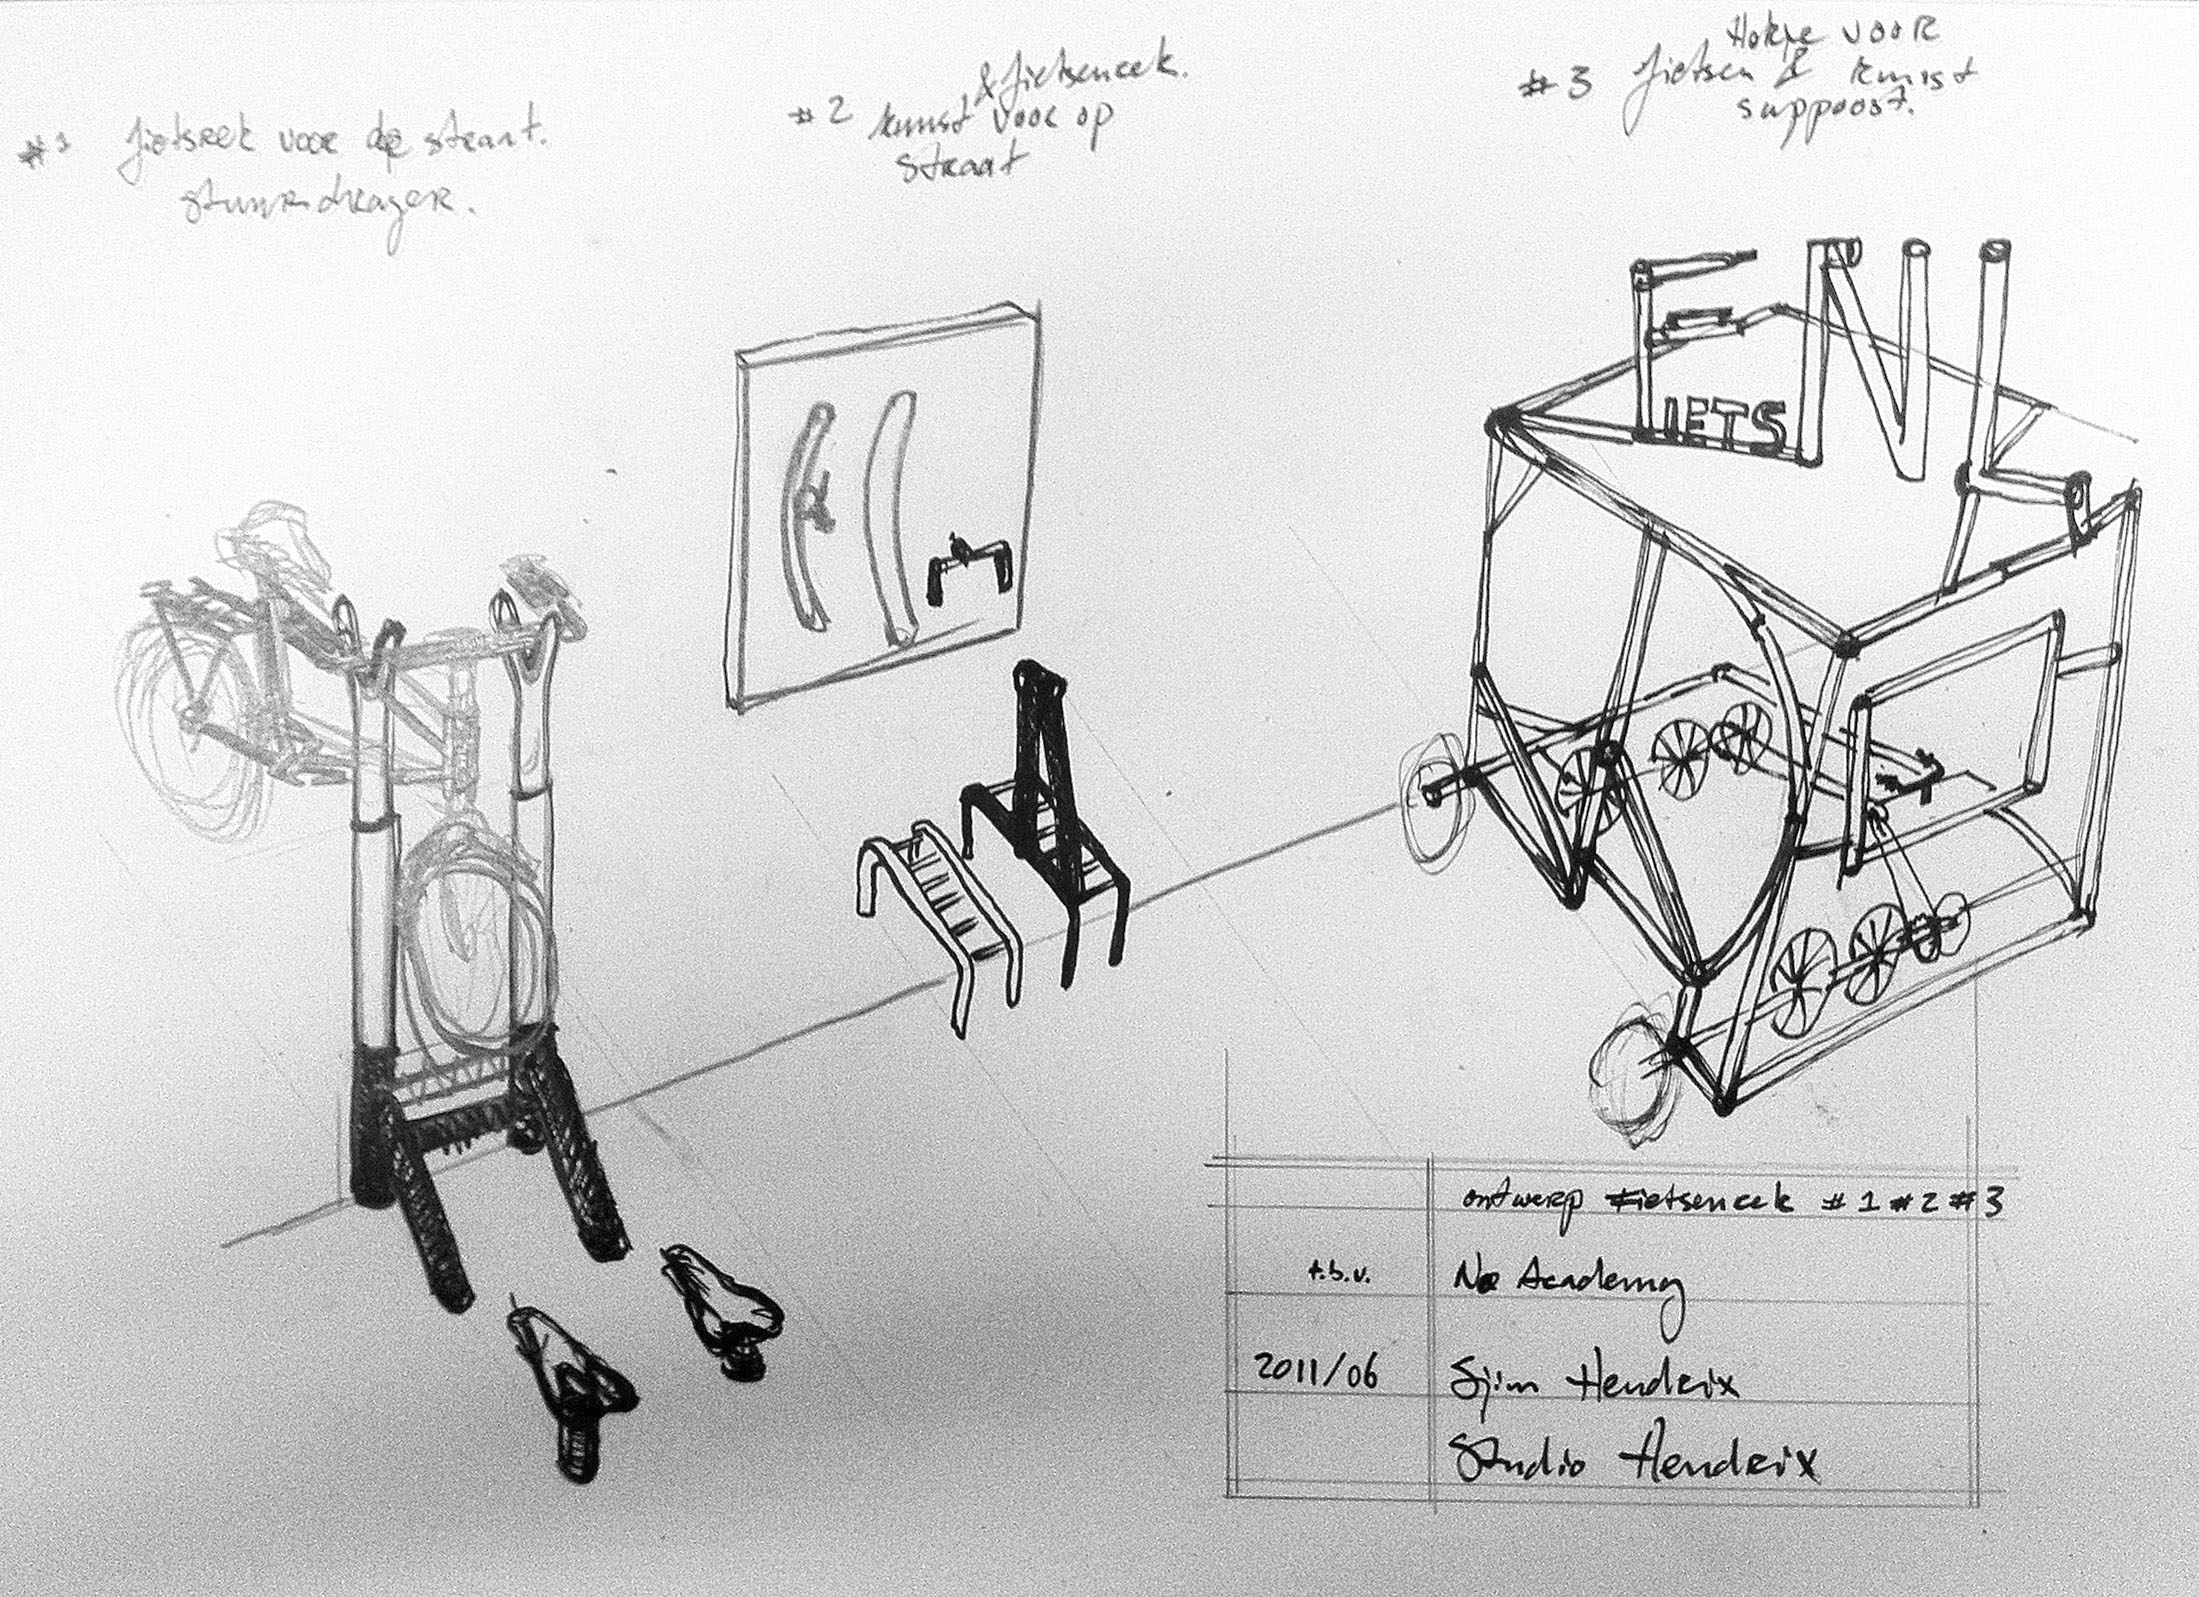 #1 fietsrek voor de straat.
stuurdrager.
& fietsenrek.
#2 kunst voor op
straat
Hokje voor
#3 fietsen & kunst
suppoost.
EN
IETS
ontwerp Fietsenrek #1 #2 #3
t.b.v. No Academy
2011/06 Sjim Hendrix
Studio Hendrix